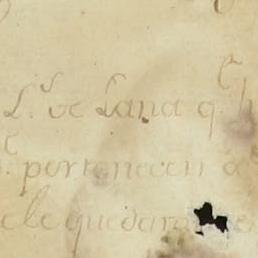 L.s de Lana q.e h
pertenecen a
ele quedara